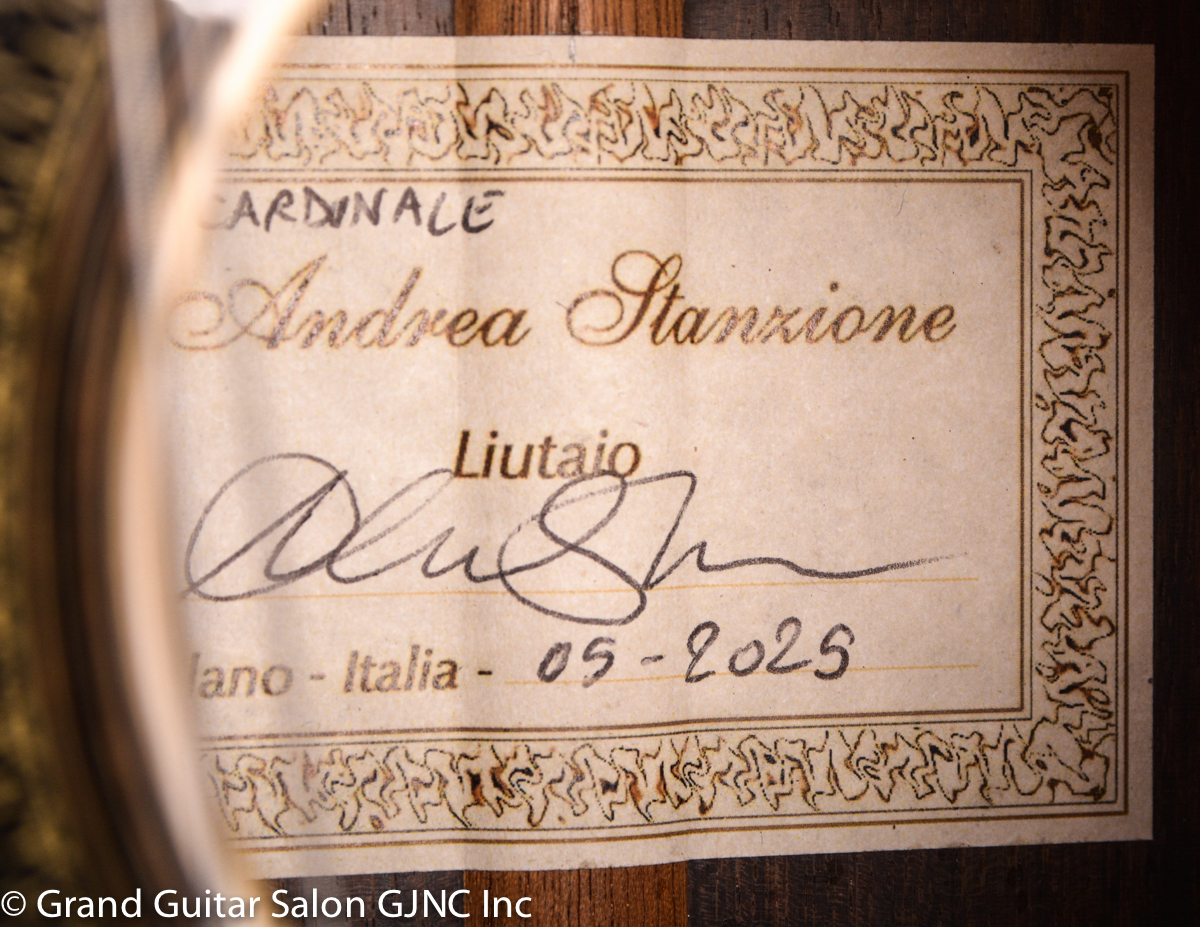 CARDINALE
Andrea Stanzione
Liutaio
lano - Italia - 05 - 2025
© Grand Guitar Salon GJNC Inc